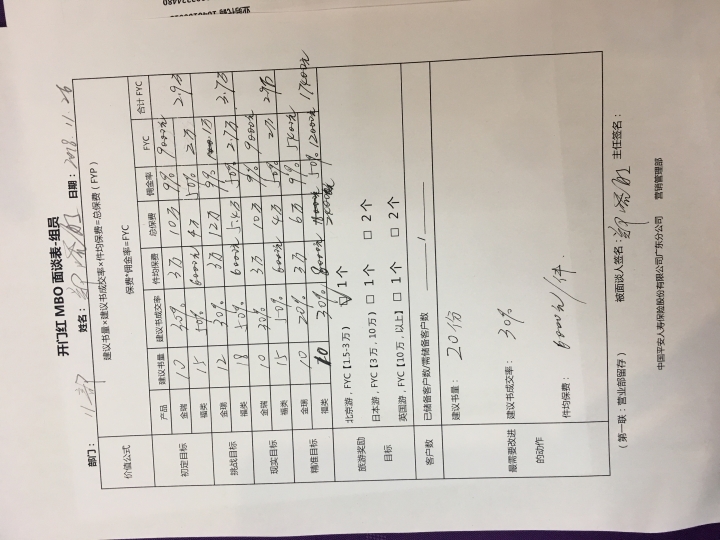 开门红 MBO 面谈表-组员
部门： 姓名： 日期：2018.11.26
价值公式 建议书量×建议书成交率×件均保费=总保费（FYP）
保费*佣金率=FYC
产品 建议书量 建议书成交率 件均保费 总保费 佣金率 FYC 合计 FYC
初定目标 金瑞 10 30% 3万 10万 9% 9000元 2.9万
福类 15 50% 6000元 4万 50% 2万
挑战目标 金瑞 12 30% 3万 12万 9% 1万 3.7万
福类 18 50% 6000元 5.4万 50% 2.7万
现实目标 金瑞 10 30% 3万 10万 9% 9000元 2.9万
福类 15 50% 6000元 4万 50% 2万
精准目标 金瑞 10 20% 3万 6万 9% 5400元 17400元
福类 10 30% 8000元 24000元 50% 12000元
旅游奖励
目标
北京游，FYC【1.5-3万） ☑ 1个
日本游，FYC【3万，10万） □ 1个 □ 2个
英国游，FYC【10万，以上】 □ 1个 □ 2个
客户数 已储备客户数/需储备客户数 /
最需要改进
的动作
建议书量： 20份
建议书成交率： 30%
件均保费： 6000元/件.
（ 第一联：营业部留存 ） 被面谈人签名： 主任签名：
中国平安人寿保险股份有限公司广东分公司 营销管理部